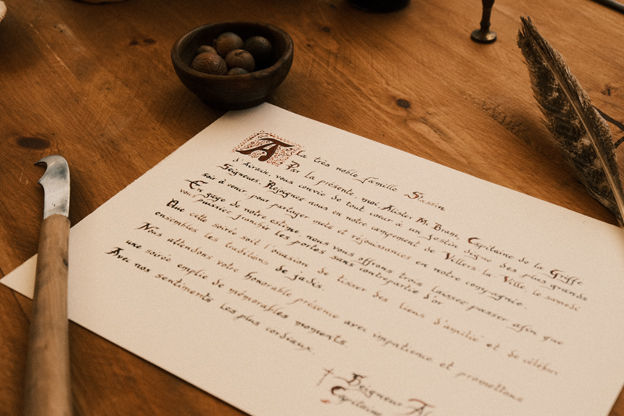 A la très noble famille Sassin
Par la présente, moi, Alister M. Bram, Capitaine de la Griffe
d'Airain, vous convie de tout cœur à un festin digne des plus grands
Seigneurs. Rejoignez nous en notre campement de Villers la Ville, le samedi
soir à venir pour partager mets et réjouissances en notre compagnie.
En gage de notre estime nous vous offrons trois laissez passer afin que
vous puissiez franchir les portes sans contrepartie d'or
Que cette soirée soit l'occasion de tisser des liens d'amitié et de célébrer
ensembles les traditions de jadis.
Nous attendons votre honorable présence avec impatience et promettons
une soirée emplie de mémorables moments.
Avec nos sentiments les plus cordiaux.
Seigneur A
Capitaine